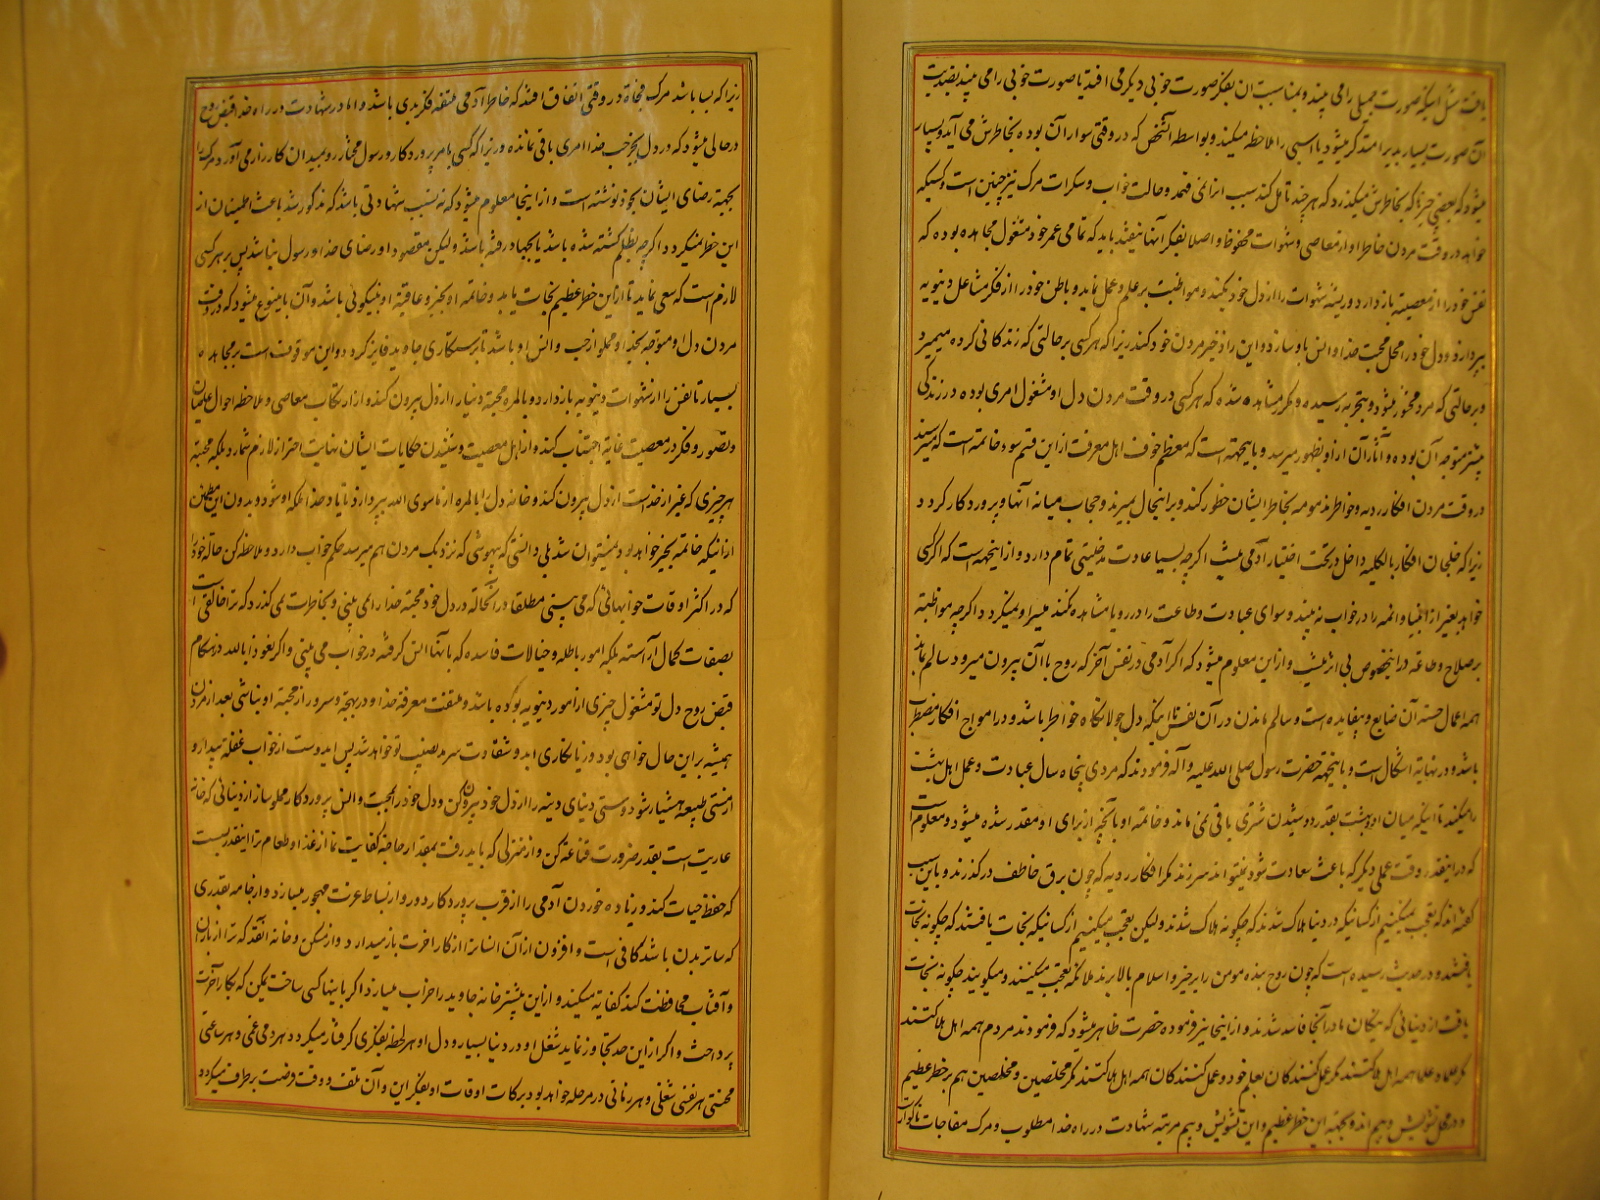 یافت مثل اینکه صورت جمیلی را می بیند و بمناسبت ان بفکر صورت خوبی دیکر می افتد یا صورت خوبی را می بیند بضدیت
آن صورت بسیار بدی را متذکر میشود یا اسبی را ملاحظه میکند و بواسطه آن شخص که در وقتی سوار آن بوده بخاطرش می آید و بسیار
میشود که بعضی چیزها که بخاطرش میکذرد که هر چند تامل کند سبب انرا نمی فهمد و حالت خواب و سکرات مرک نیز چنین است و کسیکه
خواهد در وقت مردن خاطر او از معاصی و شهوات محفوظ و اصلا بفکر آنها نیفتد باید که تمامی عمر خود مشغول مجاهده بوده که
نفس خود را از معصیت بازدارد و ریشه شهوات را از دل خود بکند و مواظبت بر علم و عمل نماید و باطن خود را از فکر مشاغل دنیویه
بپردازد و دل خود را محل محبت خدا و انس باو سازد و این را ذخیره مردن خود کند زیرا که هر کسی بر حالتی که زندکانی کرده میمیرد
و بر حالتی که مرد محشور میشود و بتجربه رسیده و مکرر مشاهده شده که هر کسی در وقت مردن دل او مشغول امری بوده در زندکی
بیشتر متوجه آن بوده و آثار آن از او بظهور میرسد و باینجهه است که معظم خوف اهل معرفت از این قسم سوء خاتمه است که میترسند
در وقت مردن افکار ردیه و خواطر مذمومه بخاطر ایشان خطور کند و بر اینحال بمیرند و حجاب میانه آنها و پروردکار کردد
زیرا که خلجان افکار بالکلیه داخل در تحت اختیار آدمی نیست اکرچه بسیا عادت مدخلیتی تمام دارد و از اینجهه است که اکر کسی
خواهد بغیر از انبیا و ائمه را در خواب نه بیند و سوای عبادت و طاعت را در رویا مشاهده نکند میسر او نمیکردد اکرچه مواظبة
بر صلاح و طاعة در اینخصوص بی اثر نیست و از این معلوم میشود که اکر آدمی در نفس آخر که روح با آن بیرون میرود سالم نماند
همه اعمال حسنه آن ضایع و بیفایده است و سالم ماندن در آن نفس با اینکه دل جولانکاه خواطر باشد و در امواج افکار مضطرب
باشد در نهایة اشکال است و باینجهة حضرت رسول صلی الله علیه و آله فرمودند که مردی پنجاه سال عبادت و عمل اهل بهشت
را میکند تا اینکه میان او و بهشت بقدر دوشیدن شتری باقی نمی ماند و خاتمه او بآنچه از برای او مقدر شده میشود و معلوم است
که در اینقدر وقت عملی دیکر که باعث سعادت شود نمیتواند سر زند مکر افکار ردیه که چون برق خاطف در کذرند و باین سبب
کفته اند که تعجب نمیکنیم از کسانیکه در دنیا هلاک شدند که چکونه هلاک شدند ولیکن تعجب میکنیم از کسانیکه نجات یافتند که چکونه نجات
یافتند و در حدیث رسیده است که چون روح بنده مومن را بر خیر و اسلام بالا برند ملائکه تعجب میکنند و میکویند چکونه نجات
یافت از دنیائی که نیکان ما در آنجا فاسد شدند و از اینجا سر فرموده حضرت ظاهر میشود که فرمودند مردم همه اهل هلاکتند
مکر علماء و علما همه اهل هلاکتند مکر عمل کنندکان بعلم خود و عمل کنندکان همه اهل هلاکتند مکر مخلصین و مخلصین هم بر خطر عظیم
و در محل تشویش و بیم اند و بجهته این خطر عظیم و این تشویش و بیم مرتبه شهادت در راه خدا مطلوب و مرک مفاجات ناکوار است
زیراکه بسا باشد مرک فجاة در وقتی اتفاق افتد که خاطر آدمی متعلقه فکر بدی باشد و اما در شهادت در راه خدا قبض روح
در حالی میشود که در دل بجز حب خدا امری باقی نمانده زیرا که کسی بامر پروردکار و رسول مختار رو بمیدان کارزار می آورد مرک را
بجهتة رضای ایشان بخود نوشته است و از اینجا معلوم میشود که نه سبب شهادتی باشد که مذکور شد باعث اطمینان از
این خطر نمیکردد اکرچه بظلم کشته شده باشد یا بجهاد رفته باشد ولیکن مقصود او رضای خدا و رسول نباشد پس بر هر کسی
لازم است که سعی نماید تا از این خطر عظیم نجات یابد و خاتمه او بخیر و عاقبة او بنیکوئی باشد و آن باینوع میشود که در وقت
مردن دل او متوجه بخدا و مملو از حب و انس او باشد تا برستکاری جاوید فایز کردد و این موقوفست بر مجاهده
بسیار تا نفس را از شهوات دنیویه بازدارد و بالمره محبة دنیا را از دل بیرون کند و از ارتکاب معاصی و ملاحظه احوال عاصیان
و تصور و فکر در معصیت غایة اجتناب کند و از اهل معصیت و شنیدن حکایات ایشان نهایت احتراز لازم شمارد بلکه محبة
هر چیزی که غیر از خداست از دل بیرون کند و خانه دل را بالمره از ماسوی الله بپردازد تا یاد خدا ملکه او شود و بدون این مطمئن
از اینکه خاتمه بخیر خواهد بود نمیتوان شد بلی دانستی که بیهوشی که نزدیک مردن هم میرسد حکم خواب دارد و ملاحظه کن حالة خود را
که در اکثر اوقات خوابهائی که می بینی مطلقا در آنحالة در دل خود محبة خدا را نمی بینی و بخاطرت نمی کذرد که ترا خالقی است
بصفات کمال آراسته بلکه امور باطله و خیالات فاسده که بآنها انس کرفته در خواب می بینی و اکر نعوذ بالله در هنکام
قبض روح دل تو مشغول چیزی از امور دنیویه بوده باشد و ملتفت معرفة خدا و در بهجة و سرور از محبة او نباشی بعد از مردن
همیشه بر این حال خواهی بود و زیانکاری ابد و شقاوت سرمد نصیب تو خواهد شد پس ایدوست از خواب غفلة بیدار و
از مستی طبیعة هشیار شو و دوستی دنیای دنیه را از دل خود بیرون کن و دل خود را بمحبت و انس پروردکار مملو ساز از دنیائی که خانه
عاریت است بقدر ضرورت قناعة کن و از منزلی که باید رفت بمقدار حاجة کفایت نما از غذا و طعام ترا اینقدر بس است
که حفظ حیات کند و زیاده خوردن آدمی را از قرب پروردکار دور و از بساط عزت مهجور میسازد و از جامه بقدری
که ساتر بدن باشد کافی است و افزون از آن انسان را از کار آخرت باز میدارد و از مسکن و خانه آنقدر که ترا از باران
و آفتاب محافظت کند کفایة میکند و از این بیشتر خانه جاوید را خراب میسازد اکر باینها کسی ساخت ممکن که بکار آخرت
پرداخت و اکر از این حد تجاوز نماید شغل او در دنیا بسیار و دل او هر لحظه بفکری کرفتار میکردد هر دمی غمی و هر ساعتی
محنتی هر نفسی شغلی و هر زمانی در مرحله خواهد بود برکات اوقات او بفکر این و آن تلف و وقت فرصت بر طرف میکردد